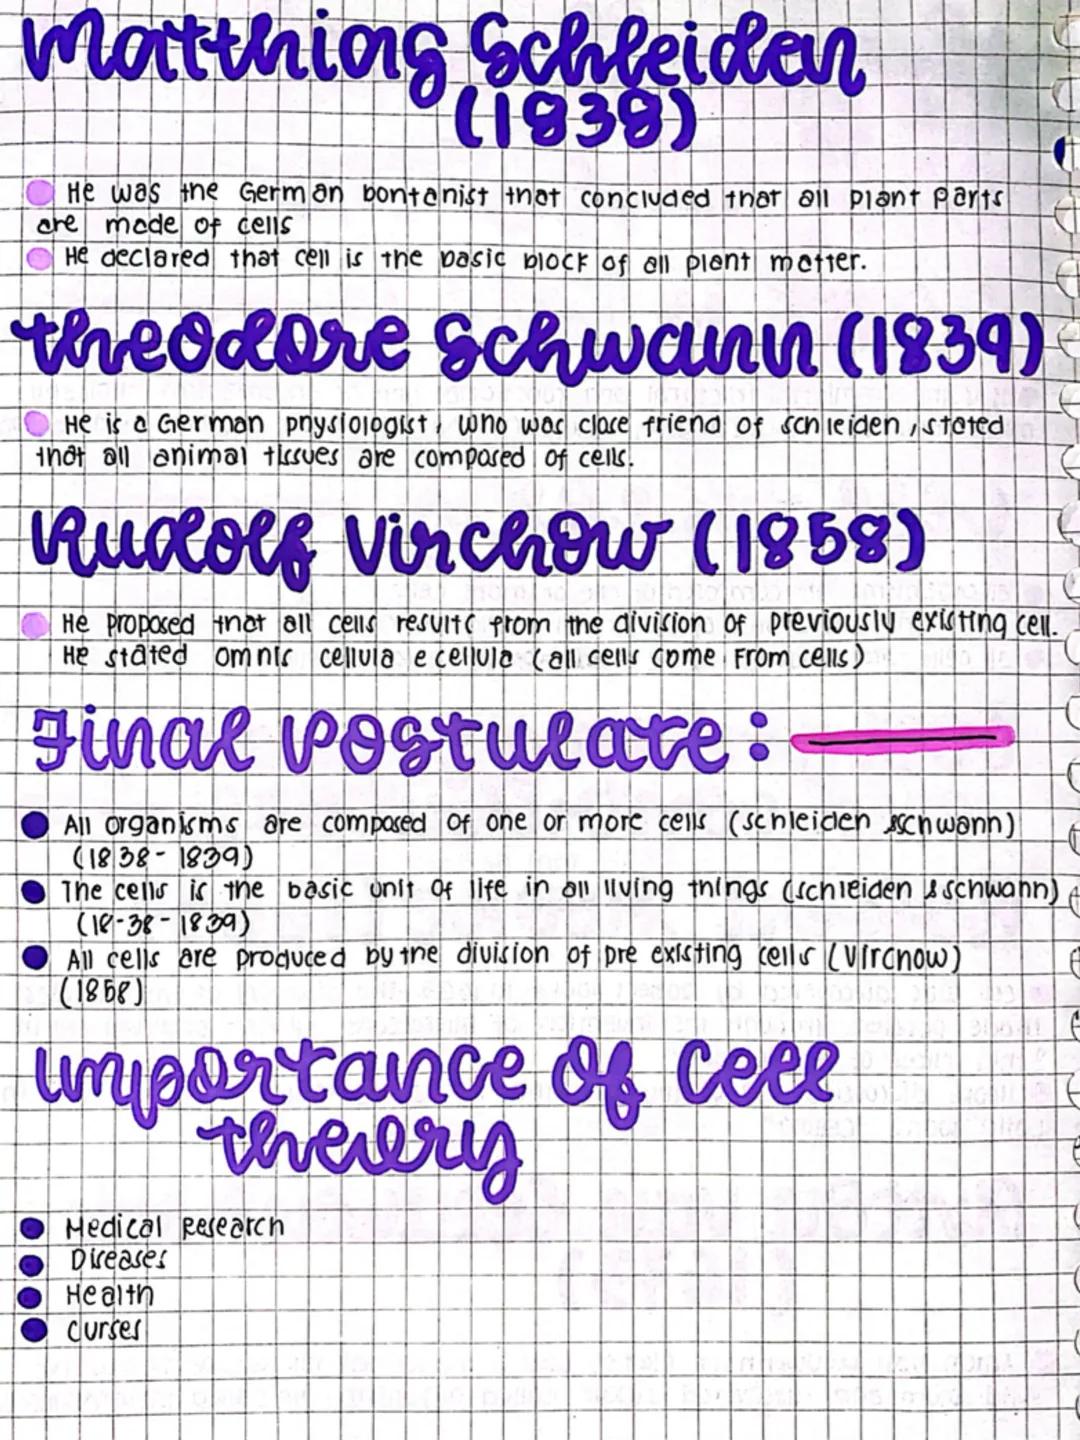 Matthias Schleiden
(1838)
He was the German bontanist that concluded that all plant parts
are made of cells
He declared that cell is the basic block of all plant matter.
Theodore Schwann (1839)
He is a German physiologist, who was close friend of schleiden, stated
that all animal tissues are composed of cells.
Rudolf Virchow (1858)
He proposed that all cells results from the division of previously existing cell.
He stated omnis cellula e cellula (all cells come from cells)
Final Postulate:
All organisms are composed of one or more cells (schleiden &schwann)
(1838 - 1839)
The cells is the basic unit of life in all living things (schleiden & schwann)
(18-38 - 1839)
All cells are produced by the division of pre existing cells (Virchow)
(1858)
Importance Of Cell
theory
Medical Research
Diseases
Health
curses